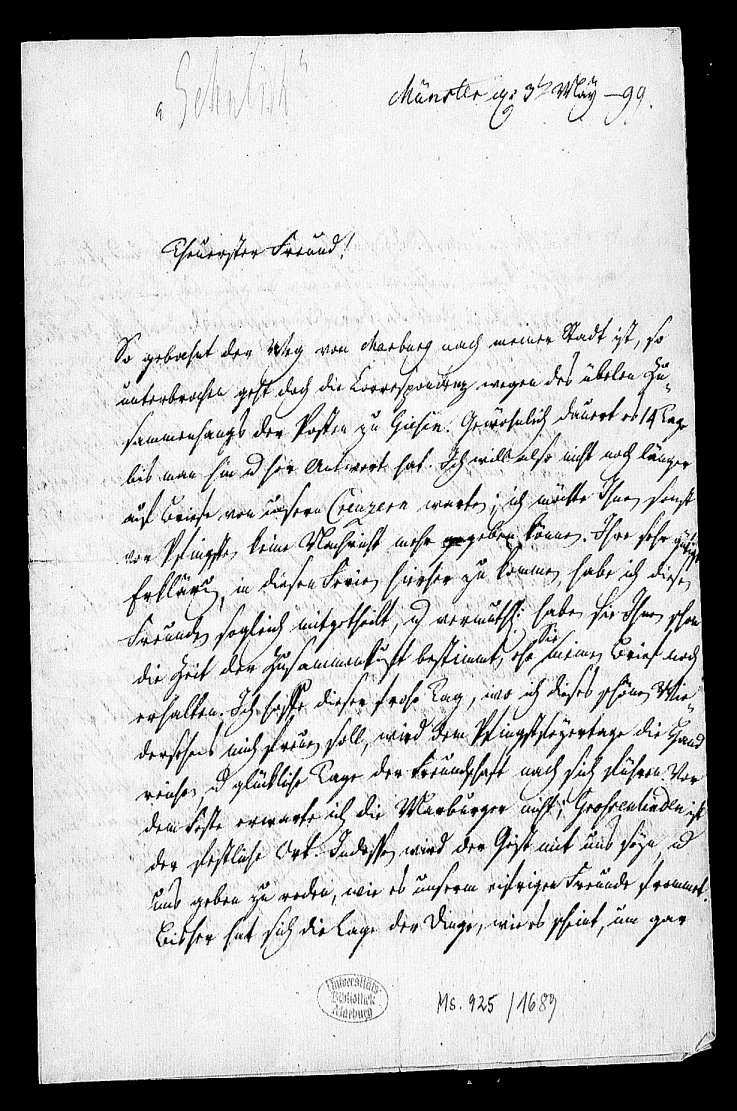 Münster 3t. May –99.
Theuerster Freund!
So gebahnt der Weg von Marburg nach meiner Stadt ist, so
unterbrochen geht doch die Correspondenz wegen des üblen Zu-
sammenhangs der Posten zu Giesen. Gewöhnlich dauert es 14 Tage
bis man hin u her Antwort hat. Ich will also nicht noch länger
auf Briefe von unsern Creuzern warten; ich möchte Ihnen sonst
vor Pfingsten keine Nachricht mehr geben können. Ihre sehr gütige
Erklärung, in diesen Ferien hierher zu kommen, habe ich diesen
Freunden sogleich mitgetheilt, u vermuthl. haben sie Ihnen schon
die Zeit der Zusammenkunft bestimmt, ehe Sie meinen Brief noch
erhalten. Ich hoffe dieser frohe Tag, wo ich dieses schönen Wie-
dersehens mich freuen soll, wird dem Pfingstfeyertage die Hand
reichen u glückliche Tage der Freundschaft nach sich führen. Vor
dem Feste erwarte ich die Marburger nicht; Grosenlinden ist
der festliche Ort. Indessen wird der Geist mit uns seyn, u
uns geben zu reden, wie es unserm eifrigen Freunde frommet.
Bisher hat sich die Lage der Dinge, wie es scheint, um gar
Universitäts-
Bibliothek
Marburg
Ms. 925/1689